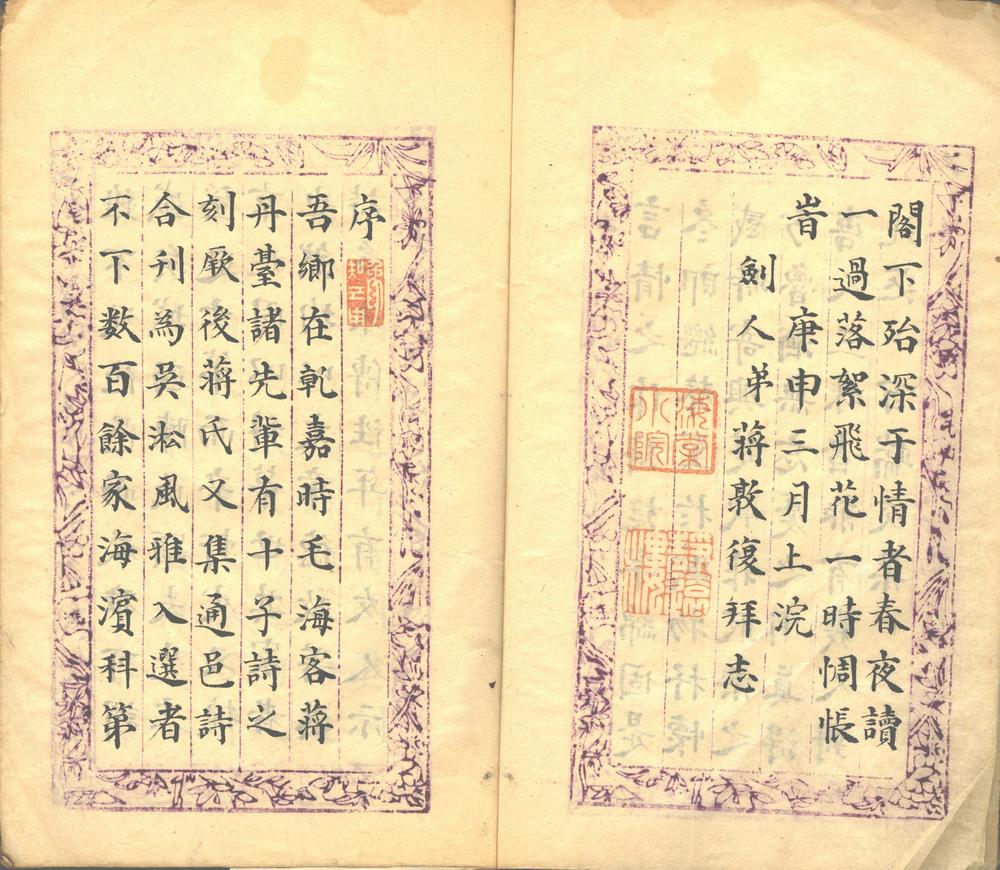 閣下殆深于情者春夜讀
一過落絮飛花一時惆悵
旹庚申三月上浣
劍人弟蔣敦復拜志
序
吾鄉在乹嘉時毛海客蔣
丹臺諸先輩有十子詩之
刻厥後蔣氏又集通邑詩
合刊為吳淞風雅入選者
不下数百餘家海濱科第